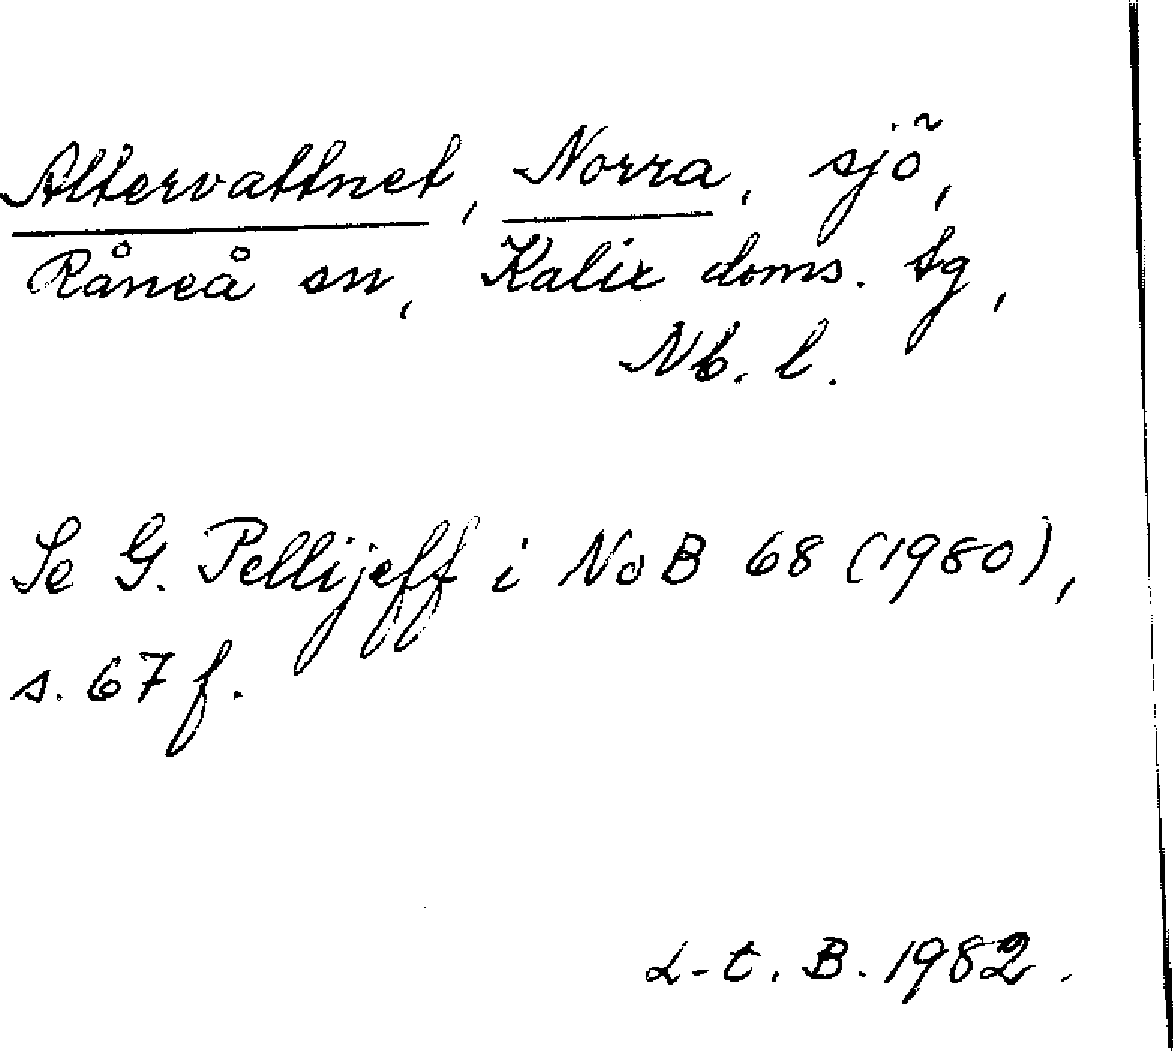 Altervattnet, Norra, sjö,
Råneå sn, Kalix doms. tg,
Nb. l.
Se G. Pellijeff i NoB 68 (1980),
s. 67 f.
L-t. B. 1982.